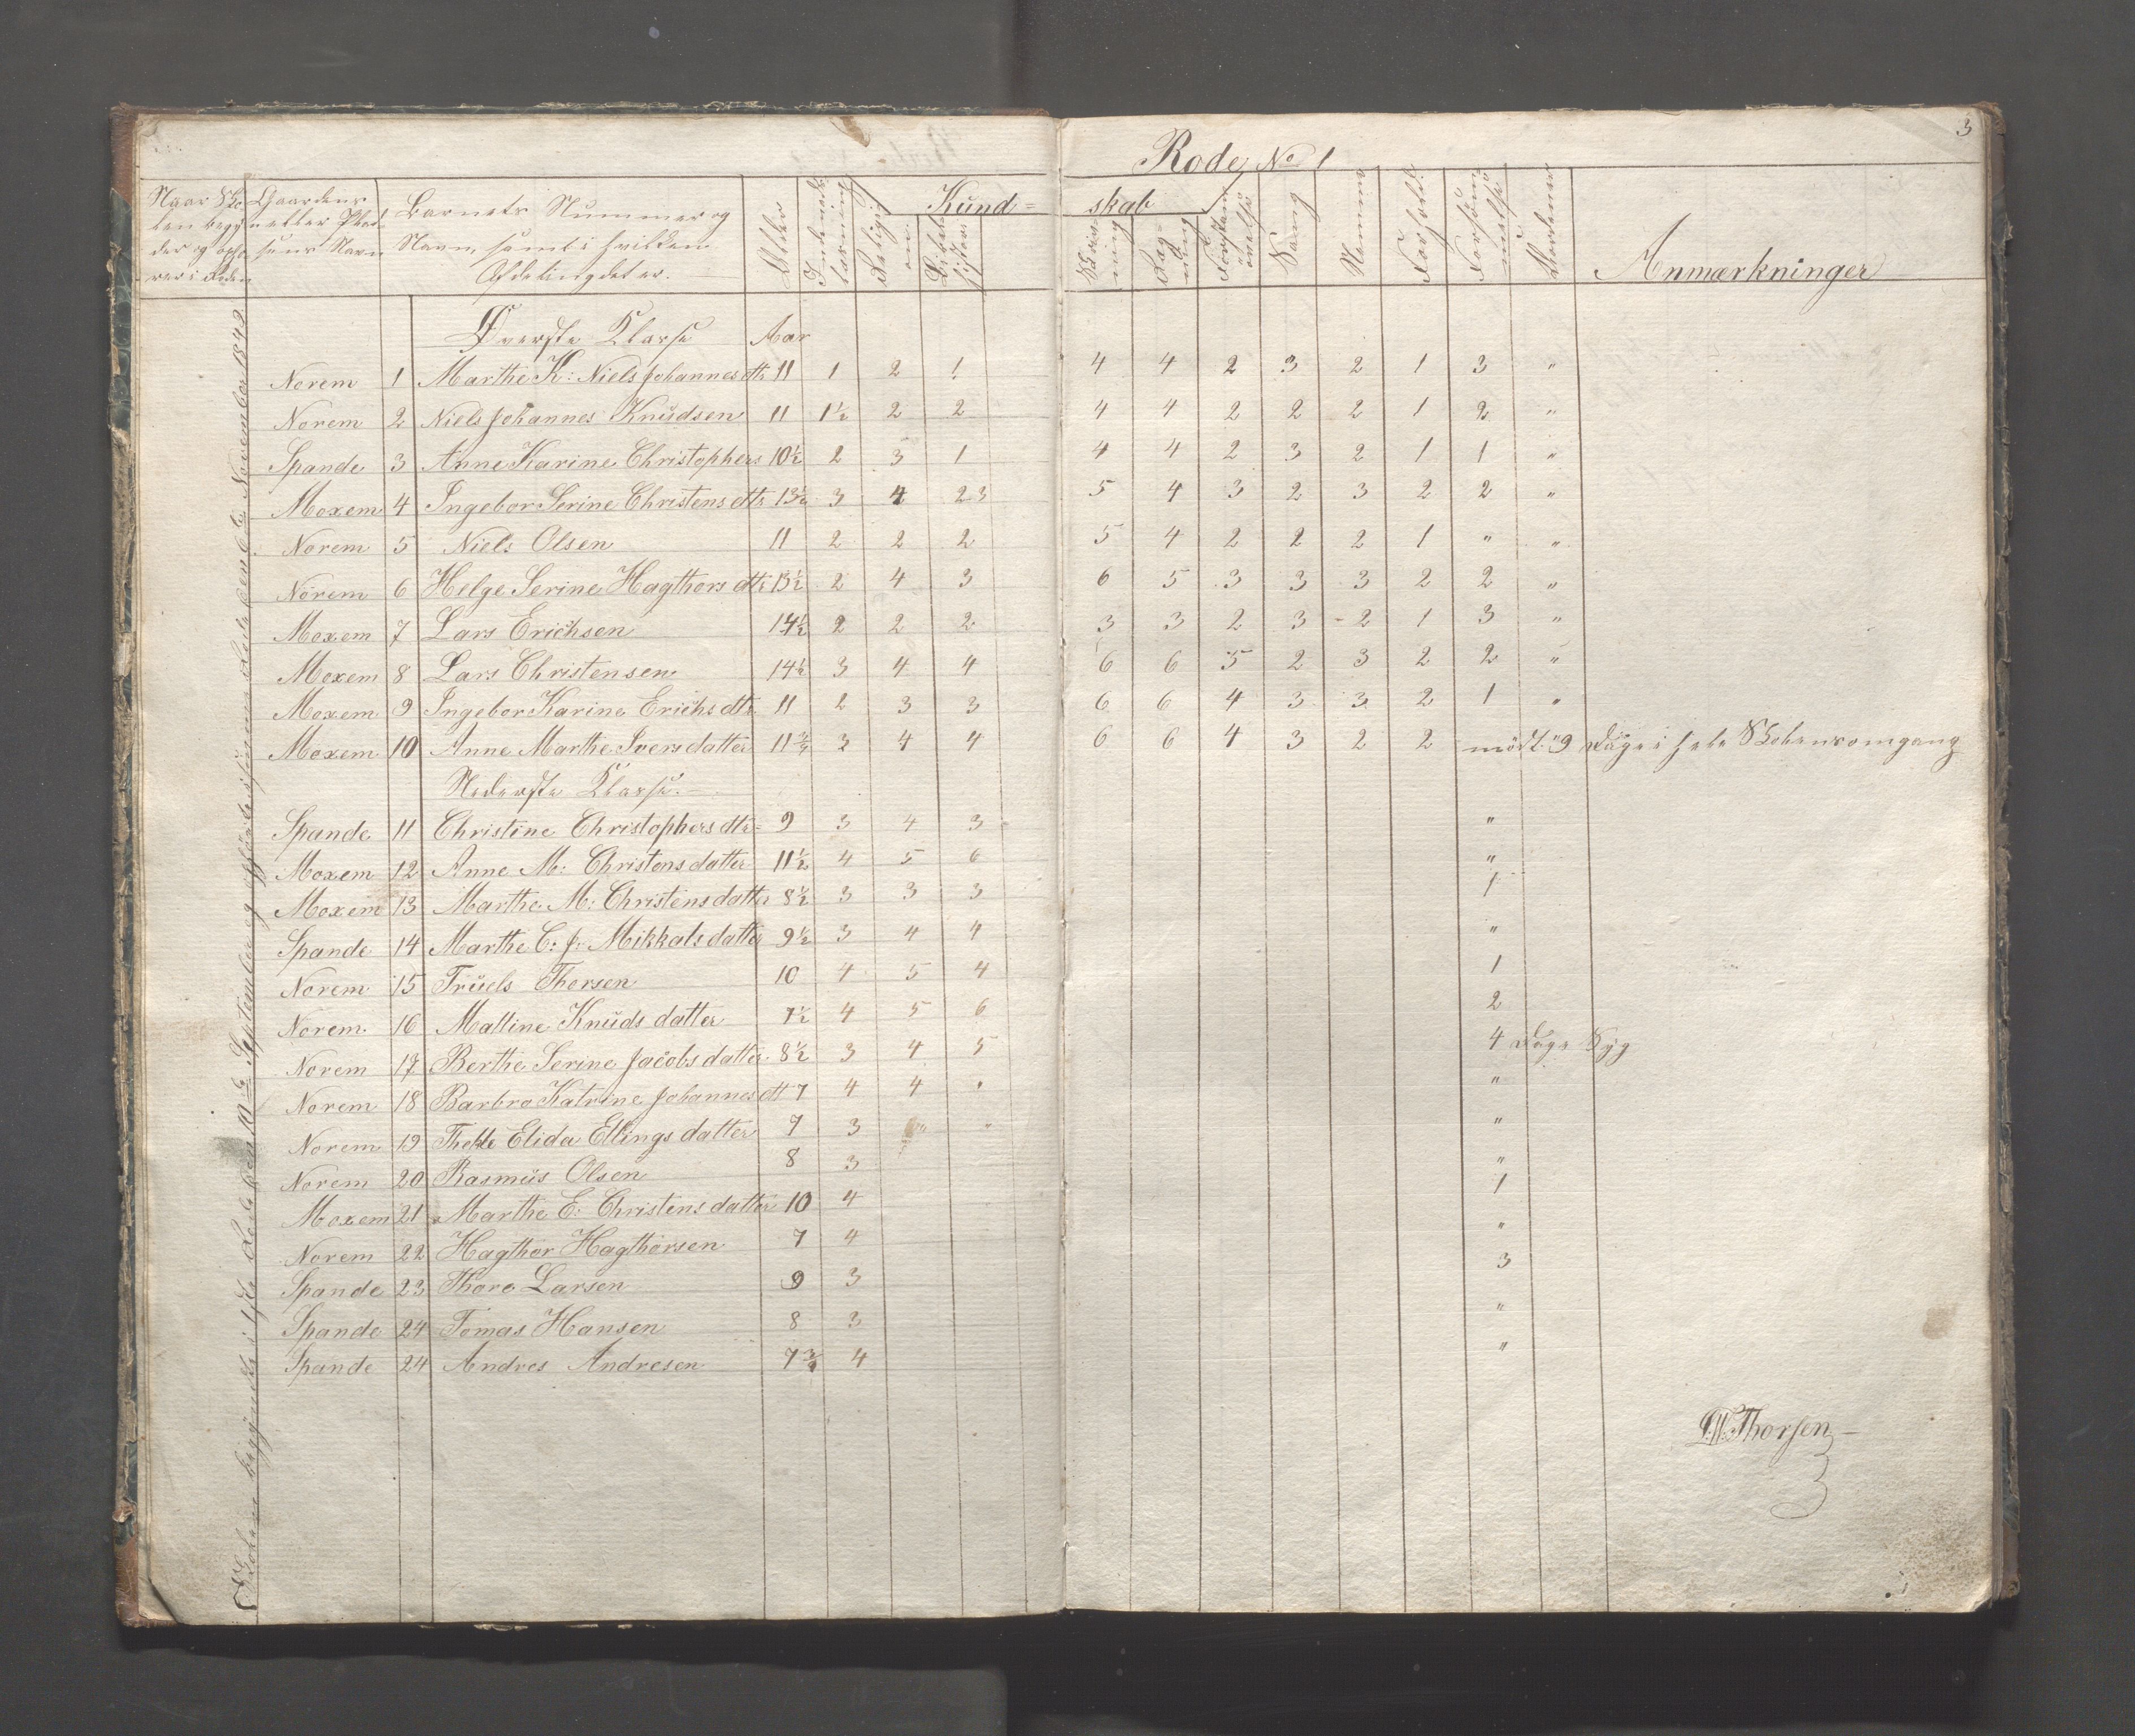 3
Rode No 1
Naar Skolen begynder og ophører i Roden
Gaardens eller Pladsens Navn
Barnets Nummer og Navn, samt i hvilken Afdeling det er.
Alder
Religion
Kund=
skab
Skrivning
Sang
Nemme
Forhold
Anmærkninger
Skolen begyndte i 1ste Rode den 10de September og ophørte i samme Rode den November 1842
Øverste Klasse Aar
Norem 1 Marthe K: Niels Johannes dtr 11 1 2 1 4 4 2 3 2 1 3 "
Norem 2 Niels Johannes Knüdsen 11 1½ 2 2 4 4 2 2 2 1 2 "
Spande 3 Anne Karine Christophers 10½ 2 3 1 4 4 2 3 2 1 1 "
Moxem 4 Ingebor Serine Christens dtr 13½ 3 4 2 3 5 4 3 2 3 2 2 "
Norem 5 Niels Olsen 11 2 2 2 5 4 2 2 2 1 " "
Norem 6 Helge Serine Hagthors dtr 13½ 2 4 3 6 5 3 3 3 2 2 "
Moxem 7 Lars Erichsen 14½ 2 2 2 3 3 2 3 2 1 3 "
Moxem 8 Lars Christensen 14½ 3 4 4 6 6 5 2 3 2 2 "
Moxem 9 Ingebor Karine Erichs dtr 11 2 3 3 6 6 4 3 3 2 1 "
Moxem 10 Anne Marthe Ivers datter 11¾ 3 4 4 6 6 4 3 2 2 mödt 9 Dage i hele Skolens omgang
Nederste Klasse.
Spande 11 Christine Christophers dtr 9 3 4 3 "
Moxem 12 Anne M: Christens datter 11½ 4 5 6 "
Moxem 13 Marthe M: Christens datter 8½ 3 3 3 1
Spande 14 Marthe C: J: Mikkals datter 9½ 3 4 4 "
Norem 15 Trüels Thorsen 10 4 5 4 1
Norem 16 Maltine Knüds datter 7½ 4 5 6 2
Norem 17 Berthe Serine Jacobs datter 8½ 3 4 5 4 Dage Syg
Norem 18 Barbro Katrine Johannes dt 7 4 4 " "
Norem 19 Thekle Elida Ellings datter 7 3 " " "
Norem 20 Rasmus Olsen 8 3 "
Moxem 21 Marthe E: Christens datter 10 4 1
Norem 22 Hagthor Hagthorsen 7 4 "
Spande 23 Thore Larsen 9 3 3
Spande 24 Tomas Hansen 8 3 "
Spande 24 Andres Andresen 7¾ 4 "
Thorsen